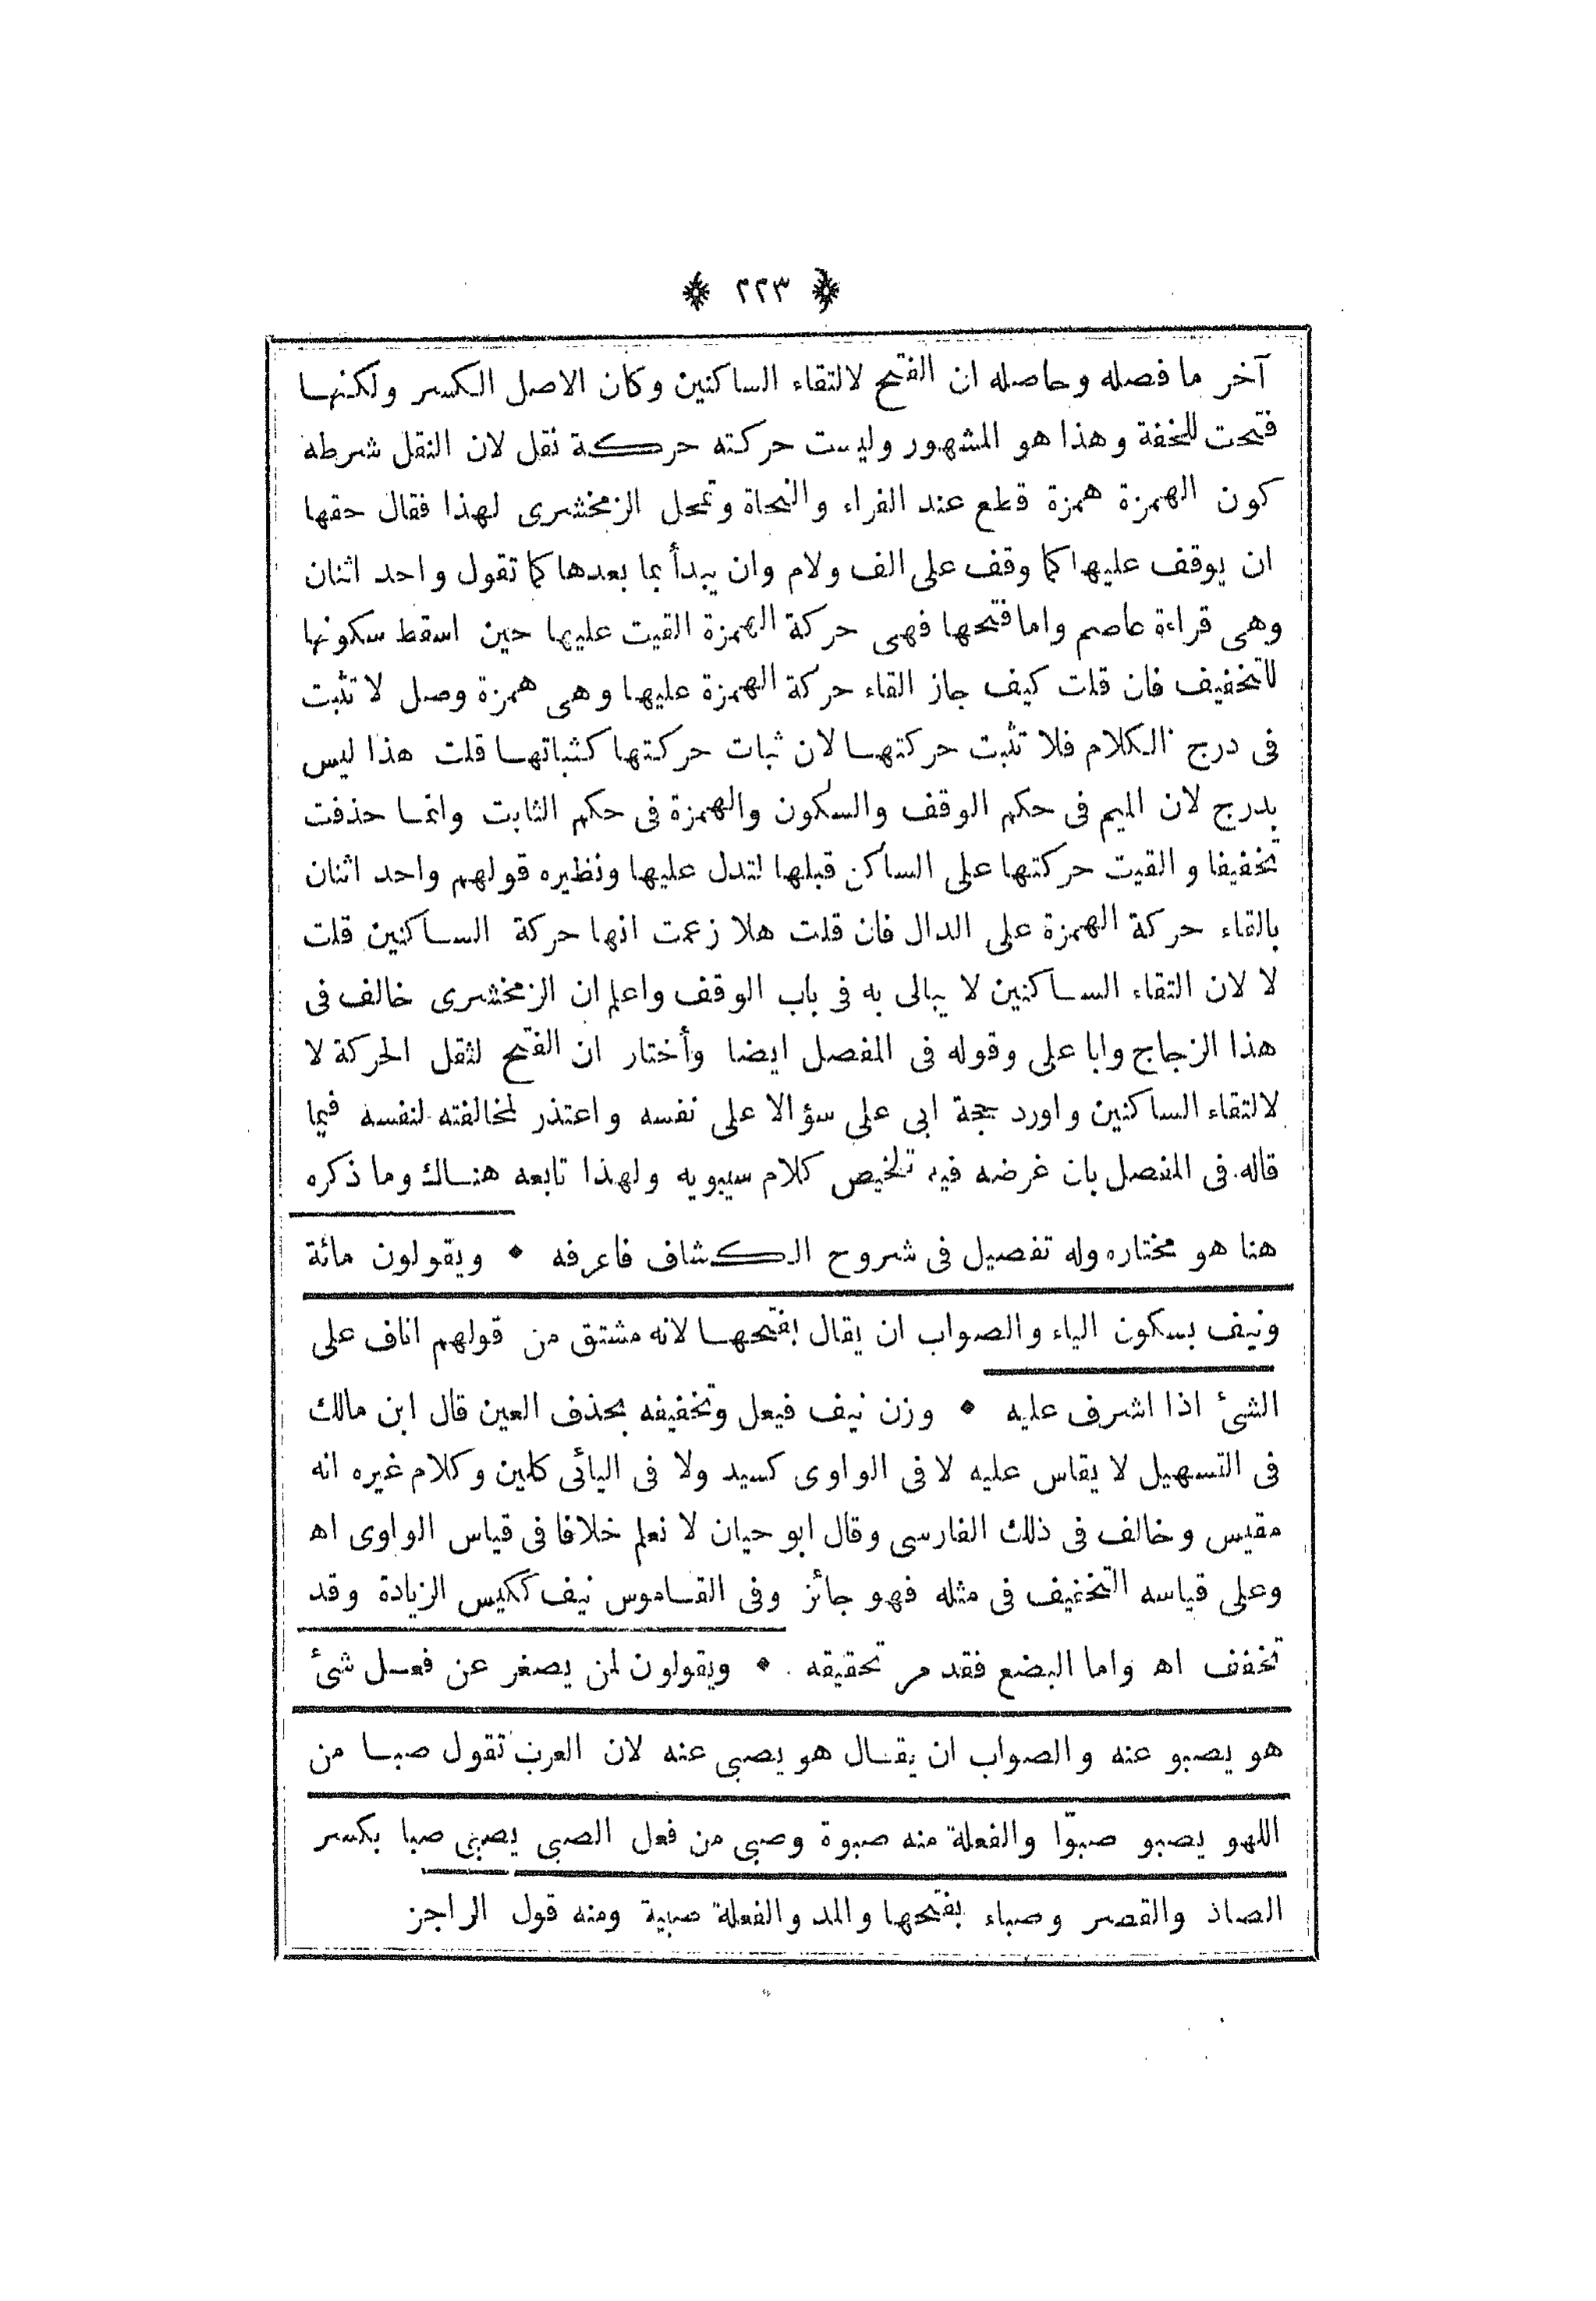 ﴿ ٢٢٣ ﴾
آخر ما فصله وحاصله ان الفتح لالتقاء الساكنين وكان الاصل الكسر ولكنها
فتحت للخفة وهذا هو المشهور وليست حركته حركة نقل لان النقل شرطه
كون الهمزة همزة قطع عند الفراء والنحاة وتمحل الزمخشرى لهذا فقال حقها
ان يوقف عليها كما وقف على الف ولام وان يبدأ بما بعدها كما تقول واحد اثنان
وهى قراءة عاصم واما فتحها فهى حركة الهمزة القيت عليها حين اسقط سكونها
للتخفيف فان قلت كيف جاز القاء حركة الهمزة عليها وهى همزة وصل لا تثبت
فى درج الكلام فلا تثبت حركتها لان ثبات حركتها كثباتها قلت هذا ليس
بدرج لان الميم فى حكم الوقف والسكون والهمزة فى حكم الثابت وانما حذفت
تخفيفا والقيت حركتها على الساكن قبلها لتدل عليها ونظيره قولهم واحد اثنان
بالقاء حركة الهمزة على الدال فان قلت هلا زعمت انها حركة الساكنين قلت
لا لان التقاء الساكنين لا يبالى به فى باب الوقف واعلم ان الزمخشرى خالف فى
هذا الزجاج وابا على وقوله فى المفصل ايضا وأختار ان الفتح لثقل الحركة لا
لالتقاء الساكنين واورد حجة ابى على سؤالا على نفسه واعتذر لمخالفته لنفسه فيما
قاله فى المفصل بان غرضه فيه تلخيص كلام سيبويه ولهذا تابعه هناك وما ذكره
هنا هو مختاره وله تفصيل فى شروح الكشاف فاعرفه * ويقولون مائة
ونيف بسكون الياء والصواب ان يقال بفتحها لانه مشتق من قولهم اناف على
الشئ اذا اشرف عليه * وزن نيف فيعل وتخفيفه بحذف العين قال ابن مالك
فى التسهيل لا يقاس عليه لا فى الواوى كسيد ولا فى اليائى كلين وكلام غيره انه
مقيس وخالف فى ذلك الفارسى وقال ابو حيان لا نعلم خلافا فى قياس الواوى اه
وعلى قياسه التخفيف فى مثله فهو جائز وفى القاموس نيف ككيس الزيادة وقد
تخفف اه واما البضع فقد مر تحقيقه * ويقولون لمن يصغر عن فعل شئ
هو يصبو عنه والصواب ان يقال هو يصبى عنه لان العرب تقول صبا من
اللهو يصبو صبوّا والفعلة منه صبوة وصبى من فعل الصبى يصبى صبا بكسر
الصاذ والقصر وصباء بفتحها والمد والفعلة صبية ومنه قول الراجز